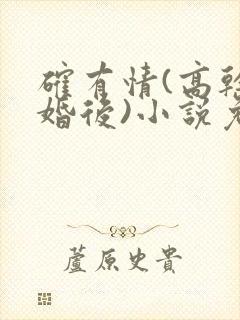 確有情(高幹
婚後)小說免
蘆原史貴